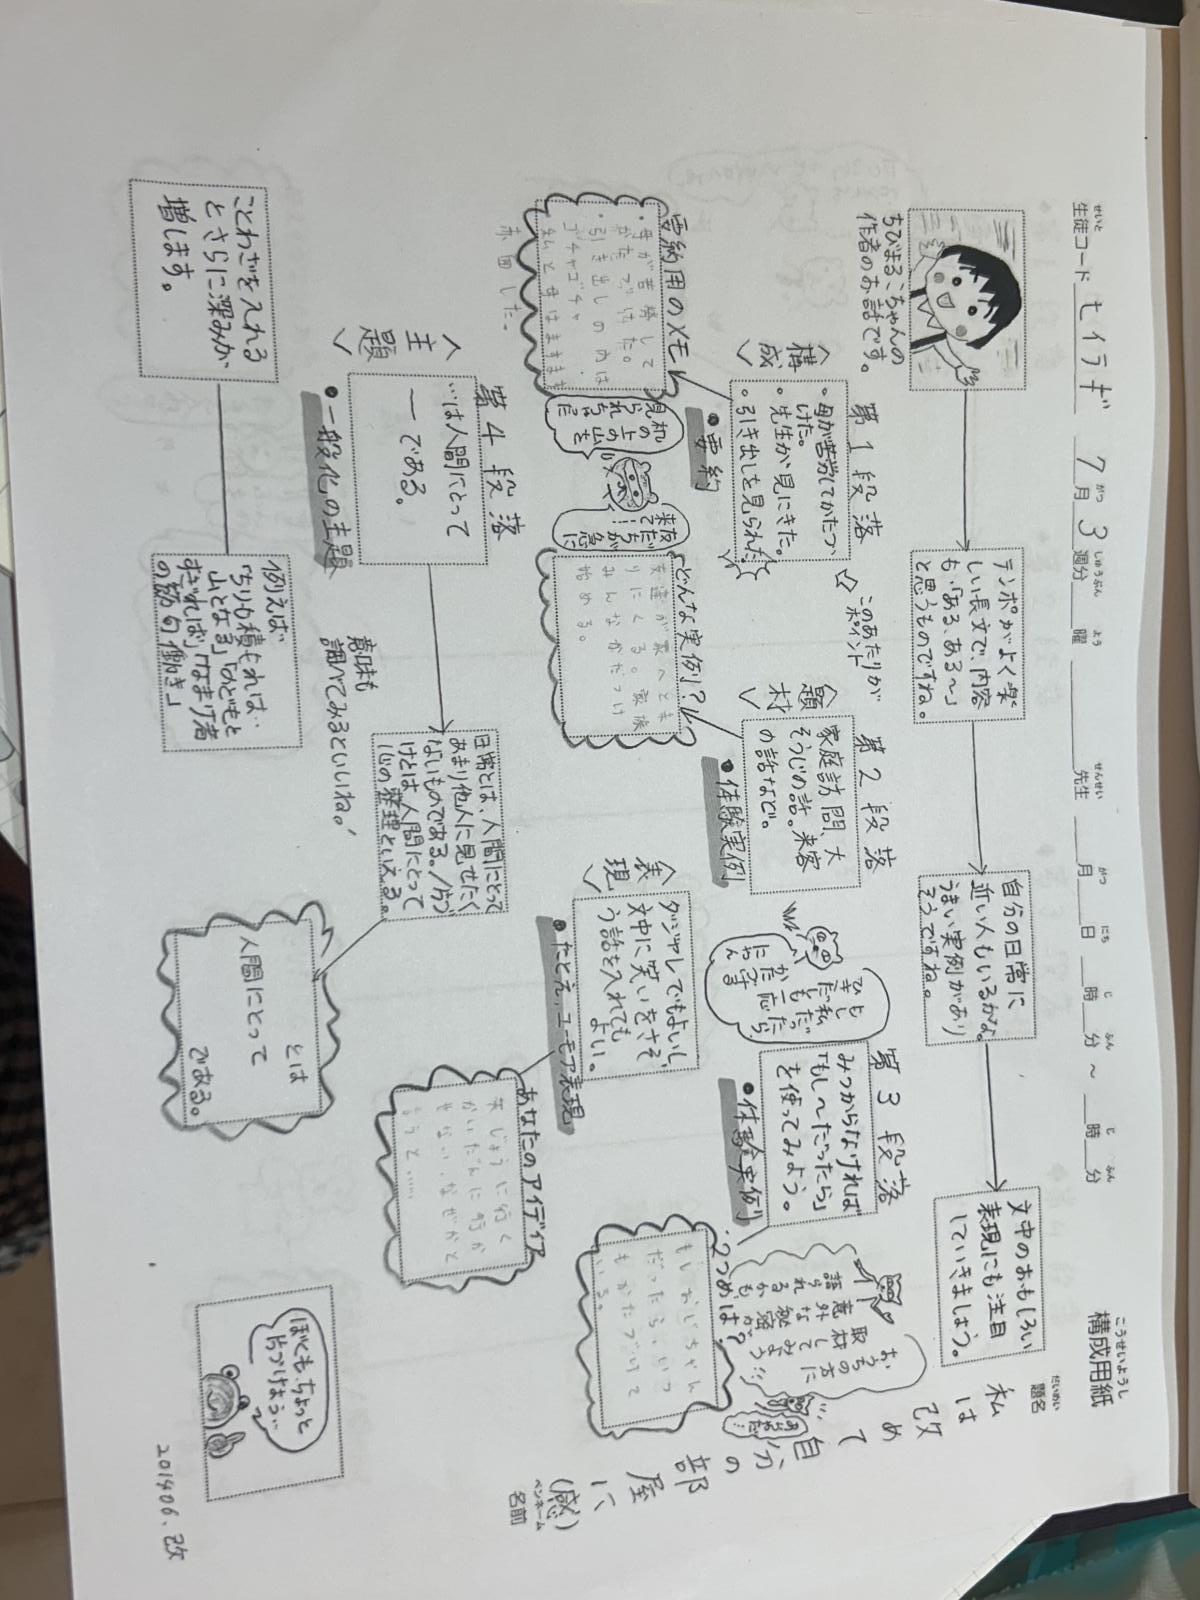 構成用紙
こうせいようし
生徒コード セイラギ 7月3週分 曜 先生 月 日 時 分 ～ 時 分
せいと がつ しゅうぶん よう せんせい がつ にち じ ふん じ ふん
題名
だいめい
私は改めて自分の部屋に、(感)
ペンネーム
名前
ちびまるこちゃんの
作者のお話です。
テンポがよく楽
しい長文で、内容
も、「ある、ある～」
と思うものですね。
自分の日常に
近い人もいるかな。
うまい実例があり
そうですね。
文中のおもしろい
表現にも注目
していきましょう。
〈構成〉
第1段落
・母が苦労してかたづ
けた。
・先生が見にきた。
・引き出しを見られた
●要約
このあたりが
ポイント
要約用のメモ
・母が苦労して
かたづけた。
・引き出しの内は
ゴチャゴチャ
私と母はますます
赤面した。
机の上の山を
見られちゃった
〈題材〉
第2段落
家庭訪問、大
そうじの話。来客
の話など。
●体験実例
どんな実例？
友達が家へとま
りにくる。家族
みんなかたづけ
始める。
第3段落
みつからなければ
「もし～だったら」
を使ってみよう。
●体験実例
2つめは？
もしおじちゃん
だったら、いつ
もかたづけて
いる。
おうちの方に
取材してみよう…
意外な秘密が
語られるかも
〈表現〉
ダジャレでもよいし、
文中に笑いをさそ
う話を入れても
よい。
●たとえ、ユーモア表現
あなたのアイディア
〈主題〉
第4段落
…は人間にとって
ーである。
●一般化の主題
日常とは、人間にとって
あまり他人に見せたく
ないものである。/片づ
けとは、人間にとって
心の整理といえる。
とは
人間にとって
である。
ことわざを入れる
とさらに深みが
増します。
例えば
「ちりも積もれば…
山となる」「のどもと
すぎれば」「なまけ者
の節句働き」
意味も
調べてみるといいね。!
ぼくも、ちょっと
片づけよう…
201406.改